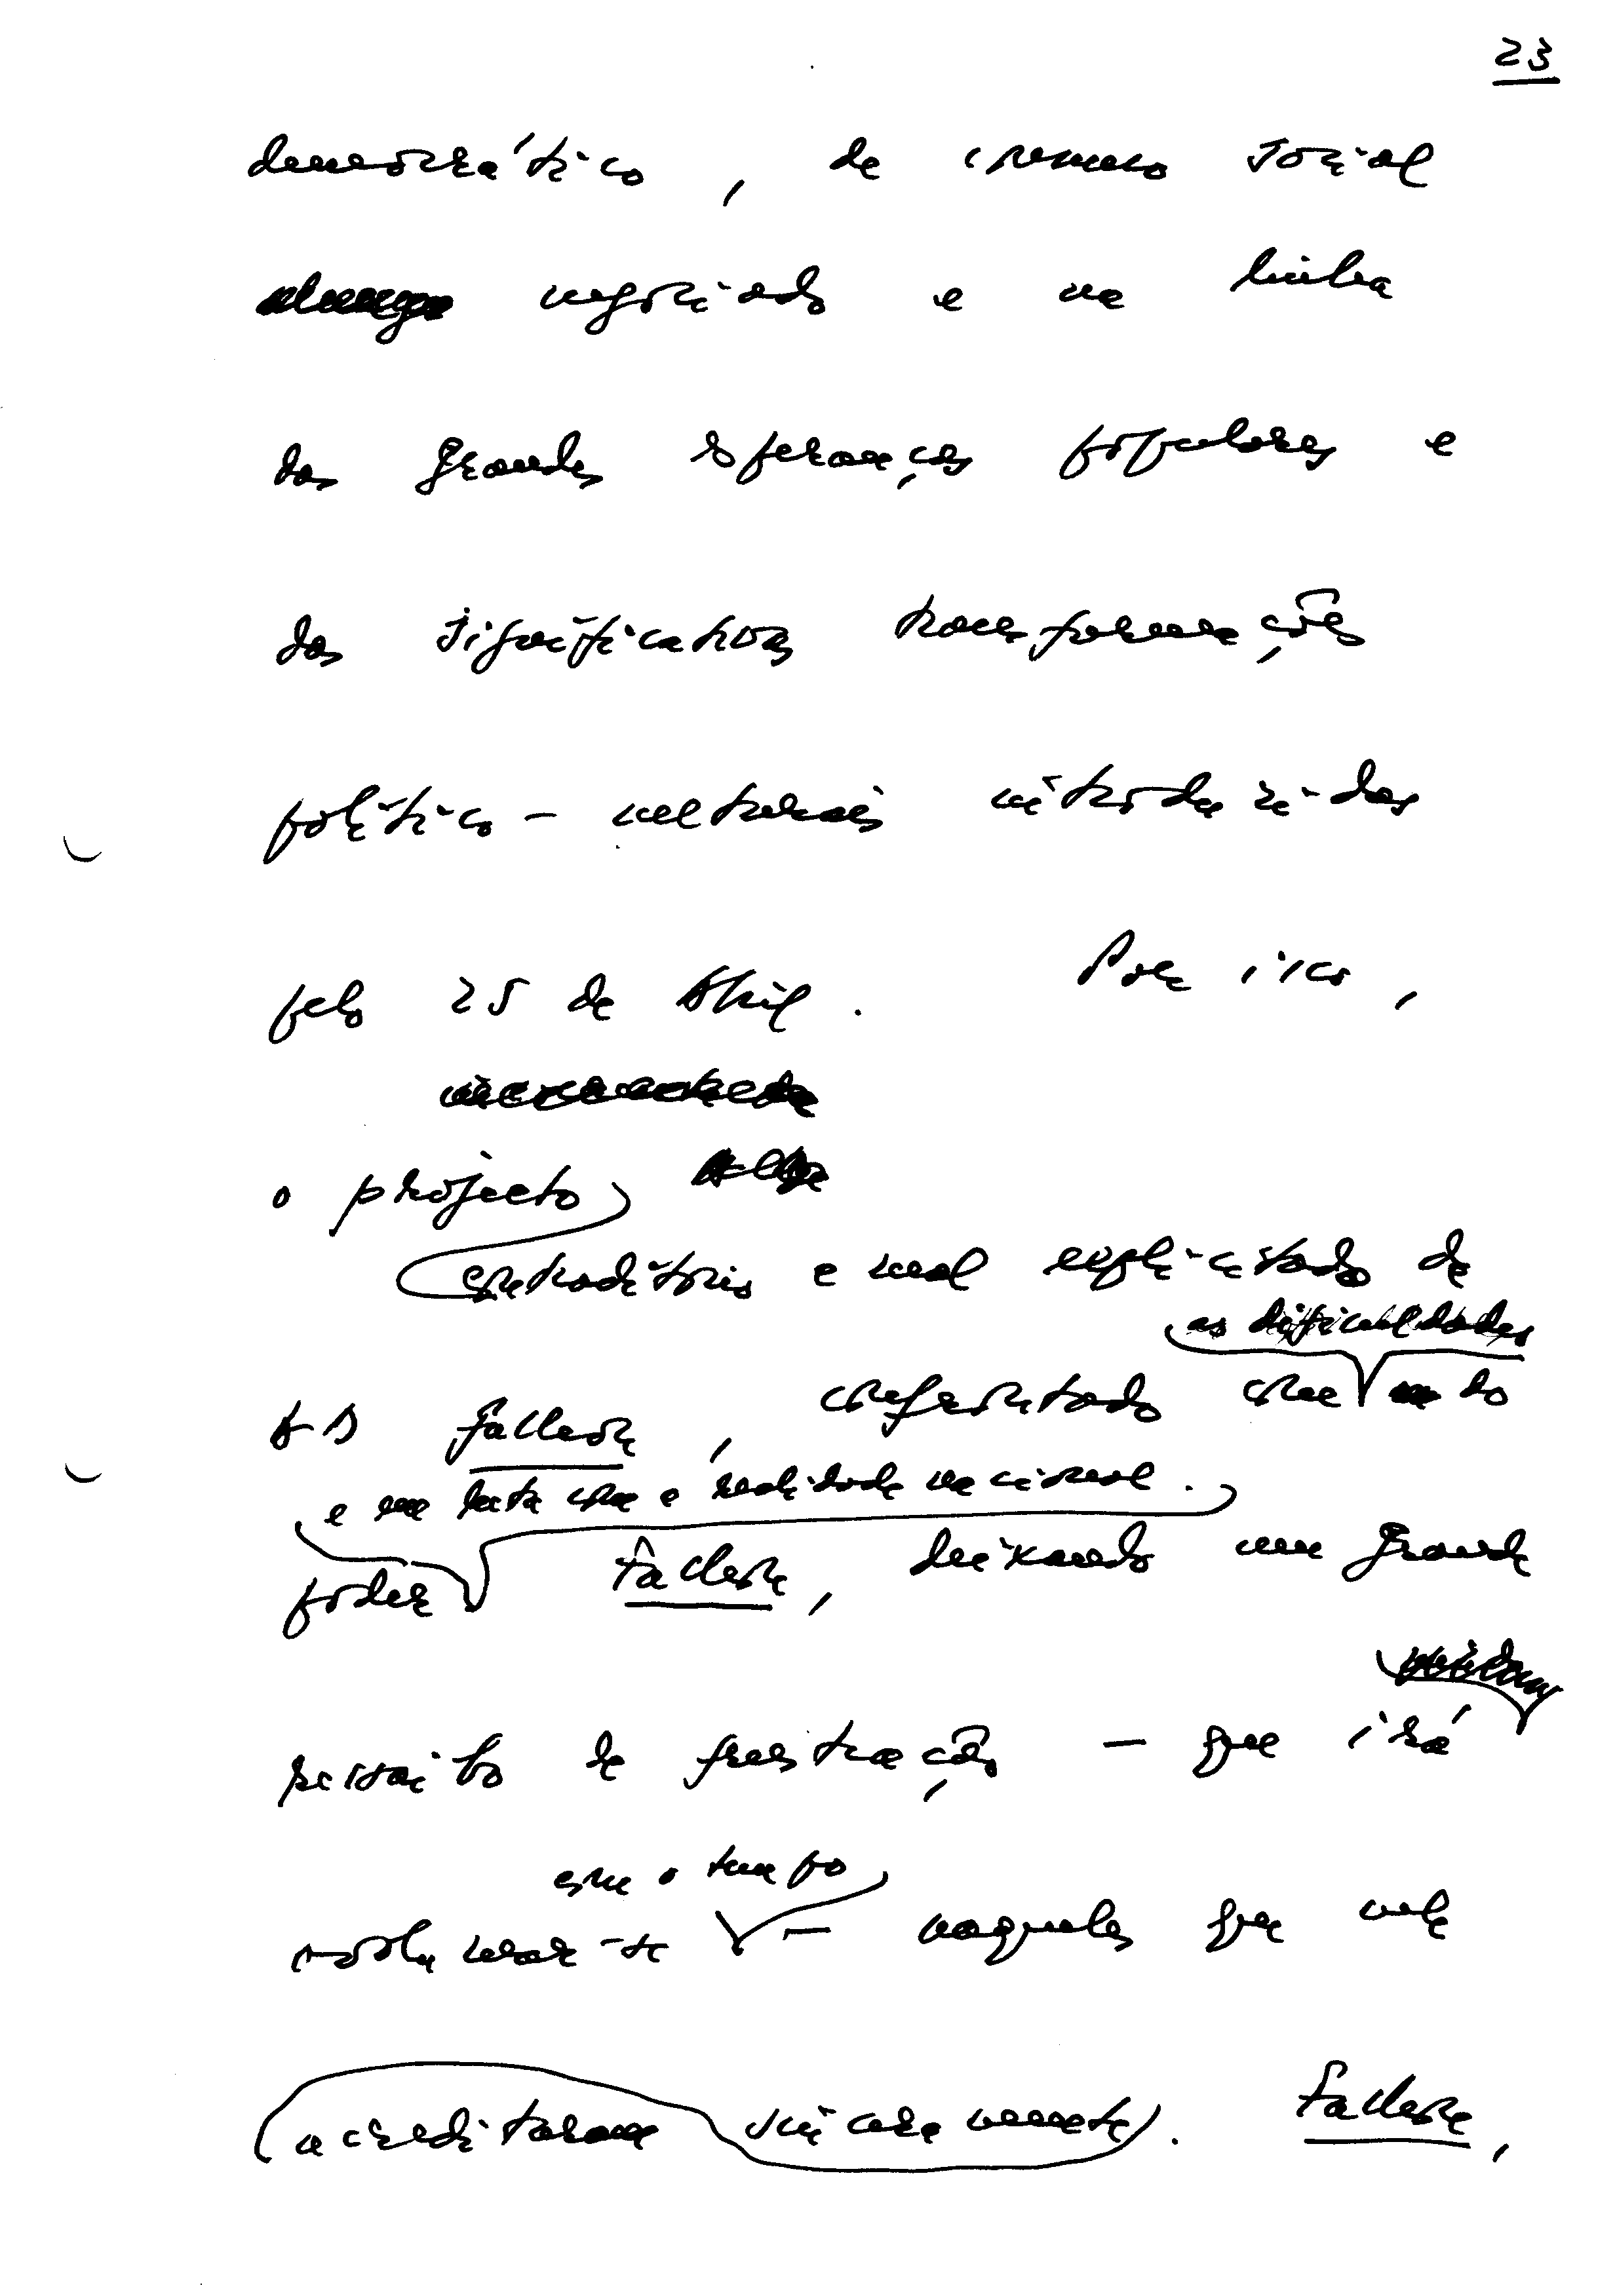 23
democrático, de consenso social
negociado e na linha
das grandes esperanças populares e
das significativas transformações
político-culturais introduzidas
pelo 25 de Abril. Por isso,
o projecto
contraditório e mal explicitado de
as dificuldades
falhou, confrontado com do
e em luta com a realidade nacional.
poder Falhou, deixando um grande
rasto de frustração — que irá
com o tempo
avolumar-se — naqueles que nele
acreditaram sinceramente. Falhou,